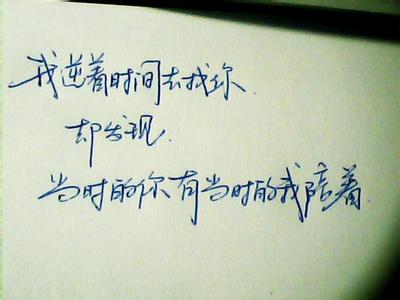 我逆着时间去找你.
却发现.
当时的你有当时的我陪着.